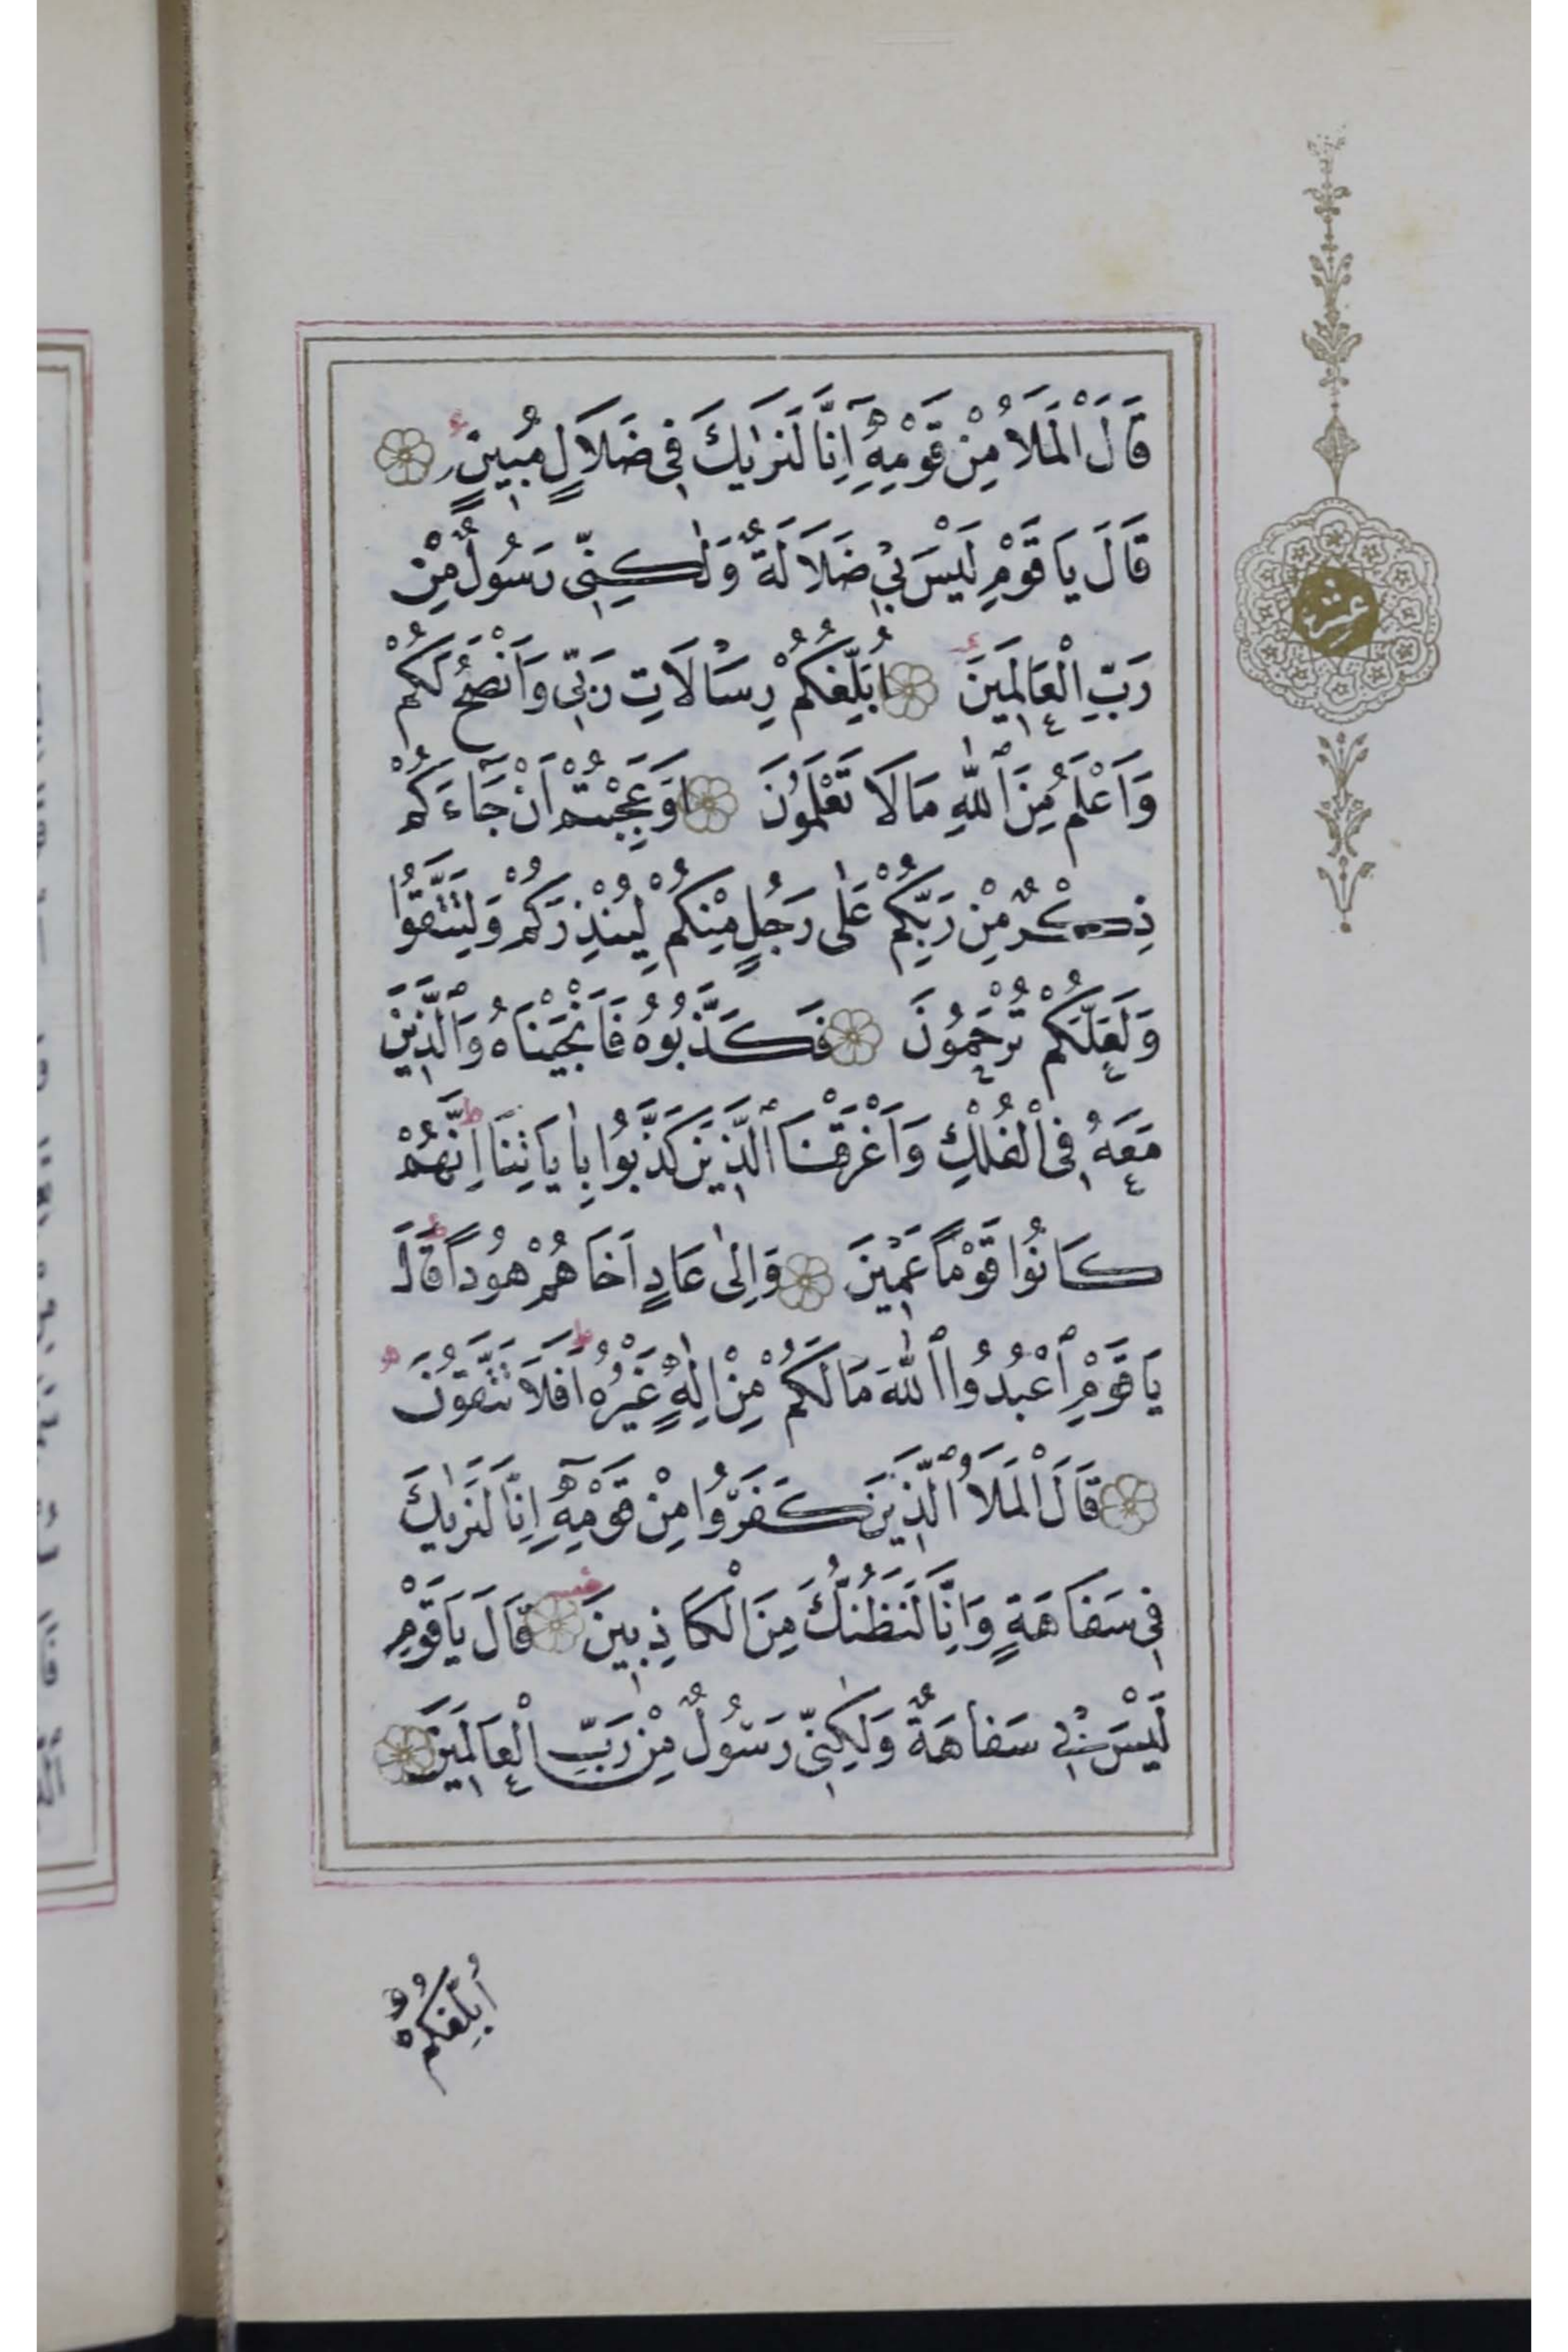 قَالَ الْمَلَأُ مِنْ قَوْمِهِٓ اِنَّا لَنَرٰيكَ فِي ضَلَالٍ مُبِينٍ
قَالَ يَا قَوْمِ لَيْسَ بِي ضَلَالَةٌ وَلٰكِنِّي رَسُولٌ مِنْ
رَبِّ الْعَالَمِينَ اُبَلِّغُكُمْ رِسَالَاتِ رَبِّي وَاَنْصَحُ لَكُمْ
وَاَعْلَمُ مِنَ ٱللّٰهِ مَا لَا تَعْلَمُونَ اَوَعَجِبْتُمْ اَنْ جَٓاءَكُمْ
ذِكْرٌ مِنْ رَبِّكُمْ عَلٰى رَجُلٍ مِنْكُمْ لِيُنْذِرَكُمْ وَلِتَتَّقُوا
وَلَعَلَّكُمْ تُرْحَمُونَ فَكَذَّبُوهُ فَاَنْجَيْنَاهُ وَٱلَّذِينَ
مَعَهُ فِي الْفُلْكِ وَاَغْرَقْنَا ٱلَّذِينَ كَذَّبُوا بِاٰيَاتِنَا اِنَّهُمْ
كَانُوا قَوْمًا عَمِينَ وَاِلٰى عَادٍ اَخَاهُمْ هُودًا قَالَ
يَا قَوْمِ ٱعْبُدُوا ٱللّٰهَ مَا لَكُمْ مِنْ اِلٰهٍ غَيْرُهُ اَفَلَا تَتَّقُونَ
قَالَ الْمَلَأُ ٱلَّذِينَ كَفَرُوا مِنْ قَوْمِهِٓ اِنَّا لَنَرٰيكَ
فِي سَفَاهَةٍ وَاِنَّا لَنَظُنُّكَ مِنَ الْكَاذِبِينَ قَالَ يَا قَوْمِ
لَيْسَ بِي سَفَاهَةٌ وَلٰكِنِّي رَسُولٌ مِنْ رَبِّ الْعَالَمِينَ
اُبَلِّغُكُمْ